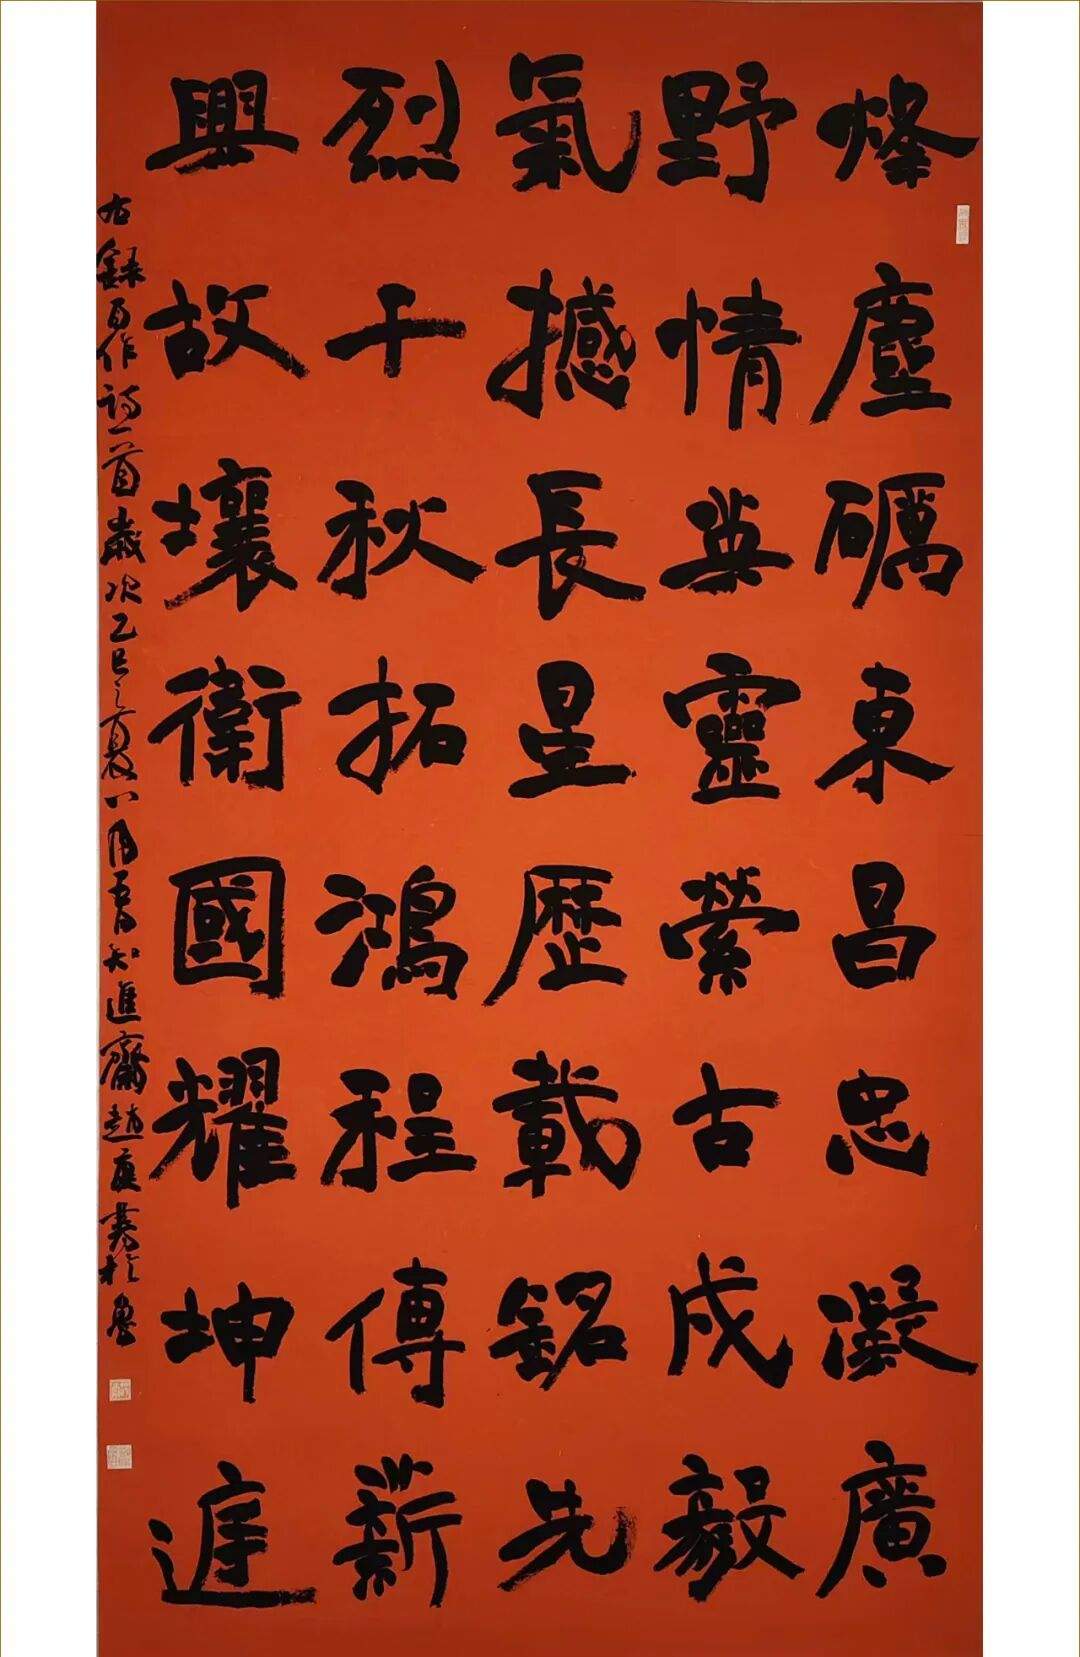 烽塵礪東昌忠凝廣
野情英靈縈古戍毅
氣撼長星歷載銘先
烈千秋拓鴻程傳薪
興故壤衛國耀坤庭
右録自作詩一首歲次乙巳之夏八月知進齋趙書於魯